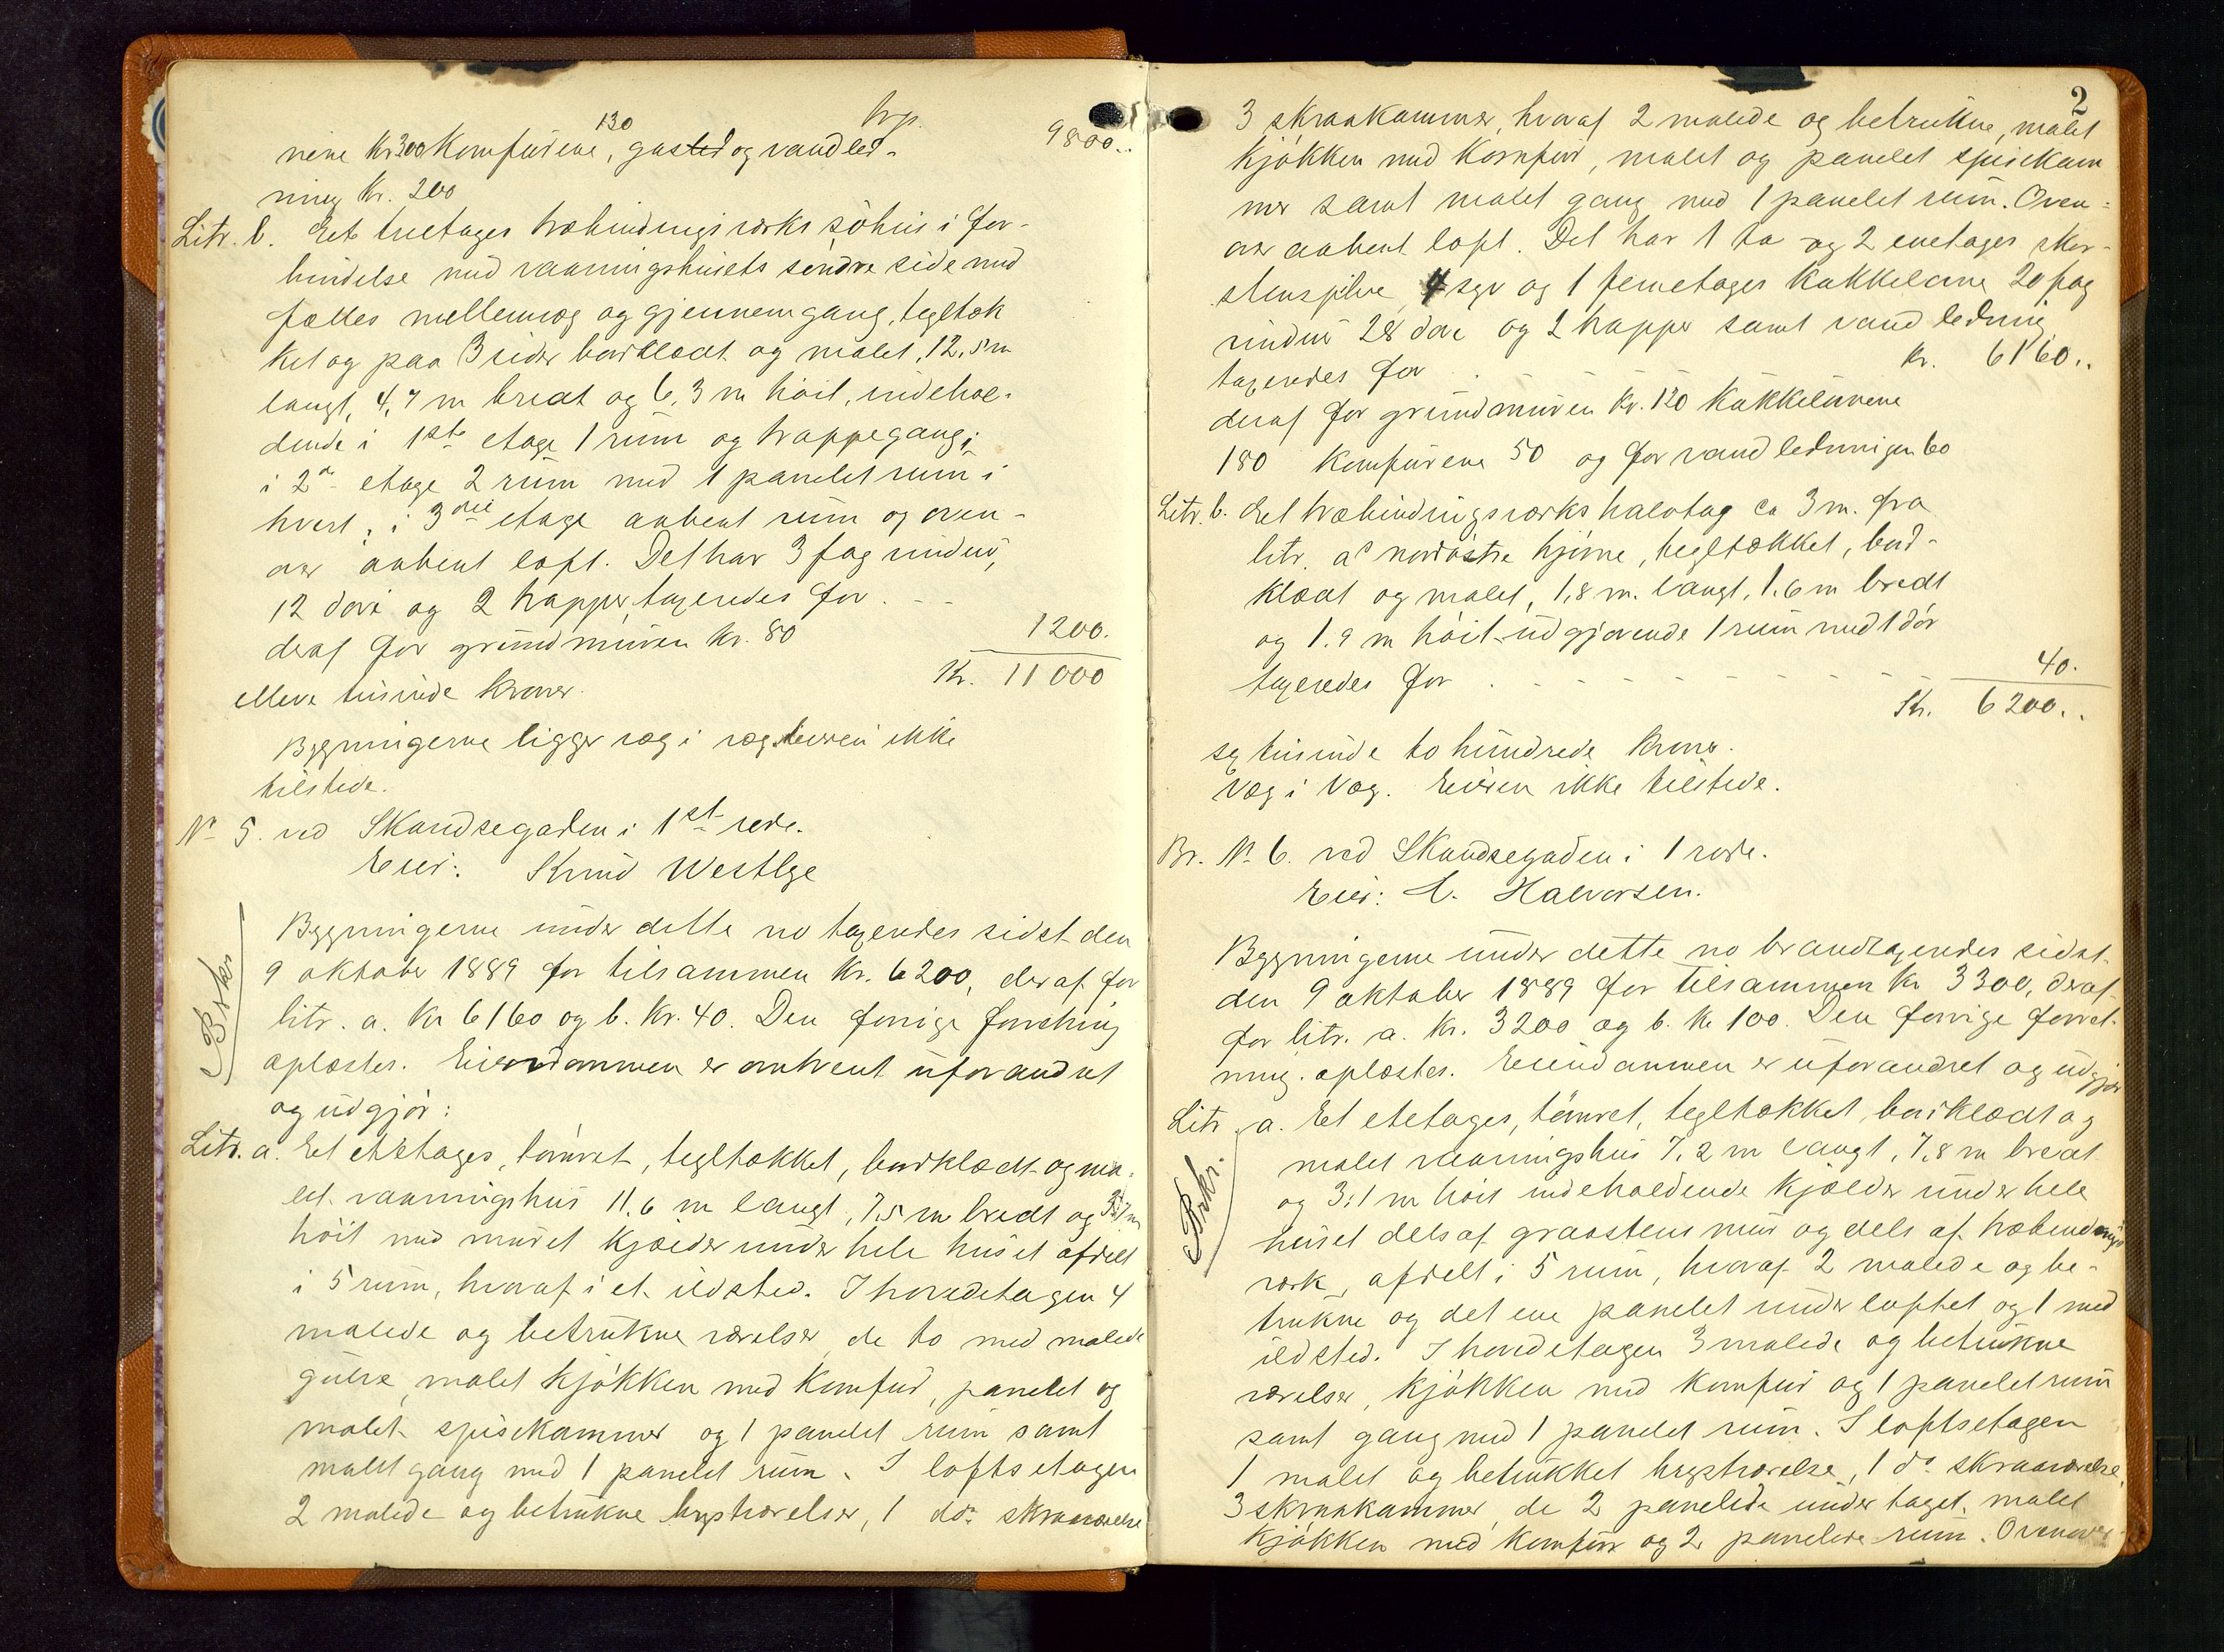 trp. 9800..
nene Kr 300 Komfürene 130, gasled og vandled-
ning Kr. 200
Litr. b. Et treetages træbindingsværks söhus i for-
bindelse med vaaningshusets söndre side med
fælles mellemvæg og gjennemgang, tegltæk
ket og paa 3 sider bordklædt og malet, 12,5 m
langt, 4,7 m bredt og 6,3 m höit, indehol-
dende i 1ste etage 1 rum og trappegang;
i 2den etage 2 rum med 1 panelet rum i
hvert, i 3die etage aabent rum og oven-
over aabent loft. Det har 3 fag vinduer,
12 döre og 2 trapper, taxeredes for . - -
deraf for grundmuren Kr. 80 1200.
elleve tusinde Kroner. Kr. 11000
Bygningerne ligger væg i væg. Eieren ikke
tilstede.
No 5. ved Skandsegaden i 1ste rode.
Eier: Knud Westlye
Bygningerne under dette no taxeredes sidst den
9 oktober 1889 for tilsammen Kr. 6200, deraf for
litr. a. Kr 6160 og b. Kr. 40. Den forrige forretning
oplæstes. Eiendommen er omtrent uforandret
og udgjör:
Litr. a. Et etetages, tömret, tegltækket, bordklædt og ma-
let vaaningshus 11,6 m langt, 7,5 m bredt og
höit med muret Kjælder under hele huset afdelt
i 5 rum, hvoraf i et ildsted. I hovedetagen 4
malede og betrukne værelser, de to med malede
gulve, malet Kjökken med Komfur, panelet og
malet spisekammer og 1 panelet rum samt
malet gang med 1 panelet rum. I loftsetagen
2 malede og betrukne kvistværelser, 1 do. skraaværelse
2
3 skraakammer, hvoraf 2 malede og betrukne, malet
Kjökken med Komfur, malet og panelet spisekam
mer samt malet gang med 1 panelet rum. Oven-
over aabent loft. Det har 1 to og 2 enetages skor-
stenspiber, 4 og 1 femetages Kakkelovne 20 fag
vinduer 28 döre og 2 trapper samt vandledning
taxeredes for . - - - Kr. 6160..
deraf for grundmuren Kr. 120 Kakkelovnene
180 Komfurene 50 og for vandledningen 60
Litr. b. Et træbindingsværks halvtag ca 3 m. fra
litr. a's nordöstre hjörne, tegltækket, bord-
klædt og malet, 1,8 m. langt, 1,6 m bredt
og 1.9 m höit udgjörende 1 rum med 1 dör
taxeredes for . - - - - - - - - - - 40.
Kr. 6200..
sex tusinde to hundrede Kroner.
Væg i Væg. Eieren ikke tilstede.
Br. No 6. ved Skandsegaden i 1 rode.
Eier: A. Halvorsen.
Bygningerne under dette no brandtaxeredes sidst
den 9 oktober 1889 for tilsammen Kr 3300, deraf
for litr. a. Kr. 3200 og b. Kr 100. Den forrige forret-
ning oplæstes. Eiendommen er uforandret og udgjör
Litr. a. Et etetages, tömret, tegltækket, bordklædt og
malet vaaningshus 7,2 m langt, 7,8 m bredt
og 3,1 m höit indeholdende Kjælder under hele
huset dels af graastens mur og dels af træbindings
værk, afdelt i 5 rum, hvoraf 2 malede og be-
trukne og det ene panelet under loftet og 1 med
ildsted. I hovedetagen 3 malede og betrukne
værelser, Kjökken med Komfur og 1 panelet rum
samt gang med 1 panelet rum. I loftsetagen
1 malet og betrukket kvistværelse, 1 do. skraaværelse
3 skraakammer, de 2 panelede under taget, malet
Kjökken med Komfur og 2 panelede rum. Ovenover